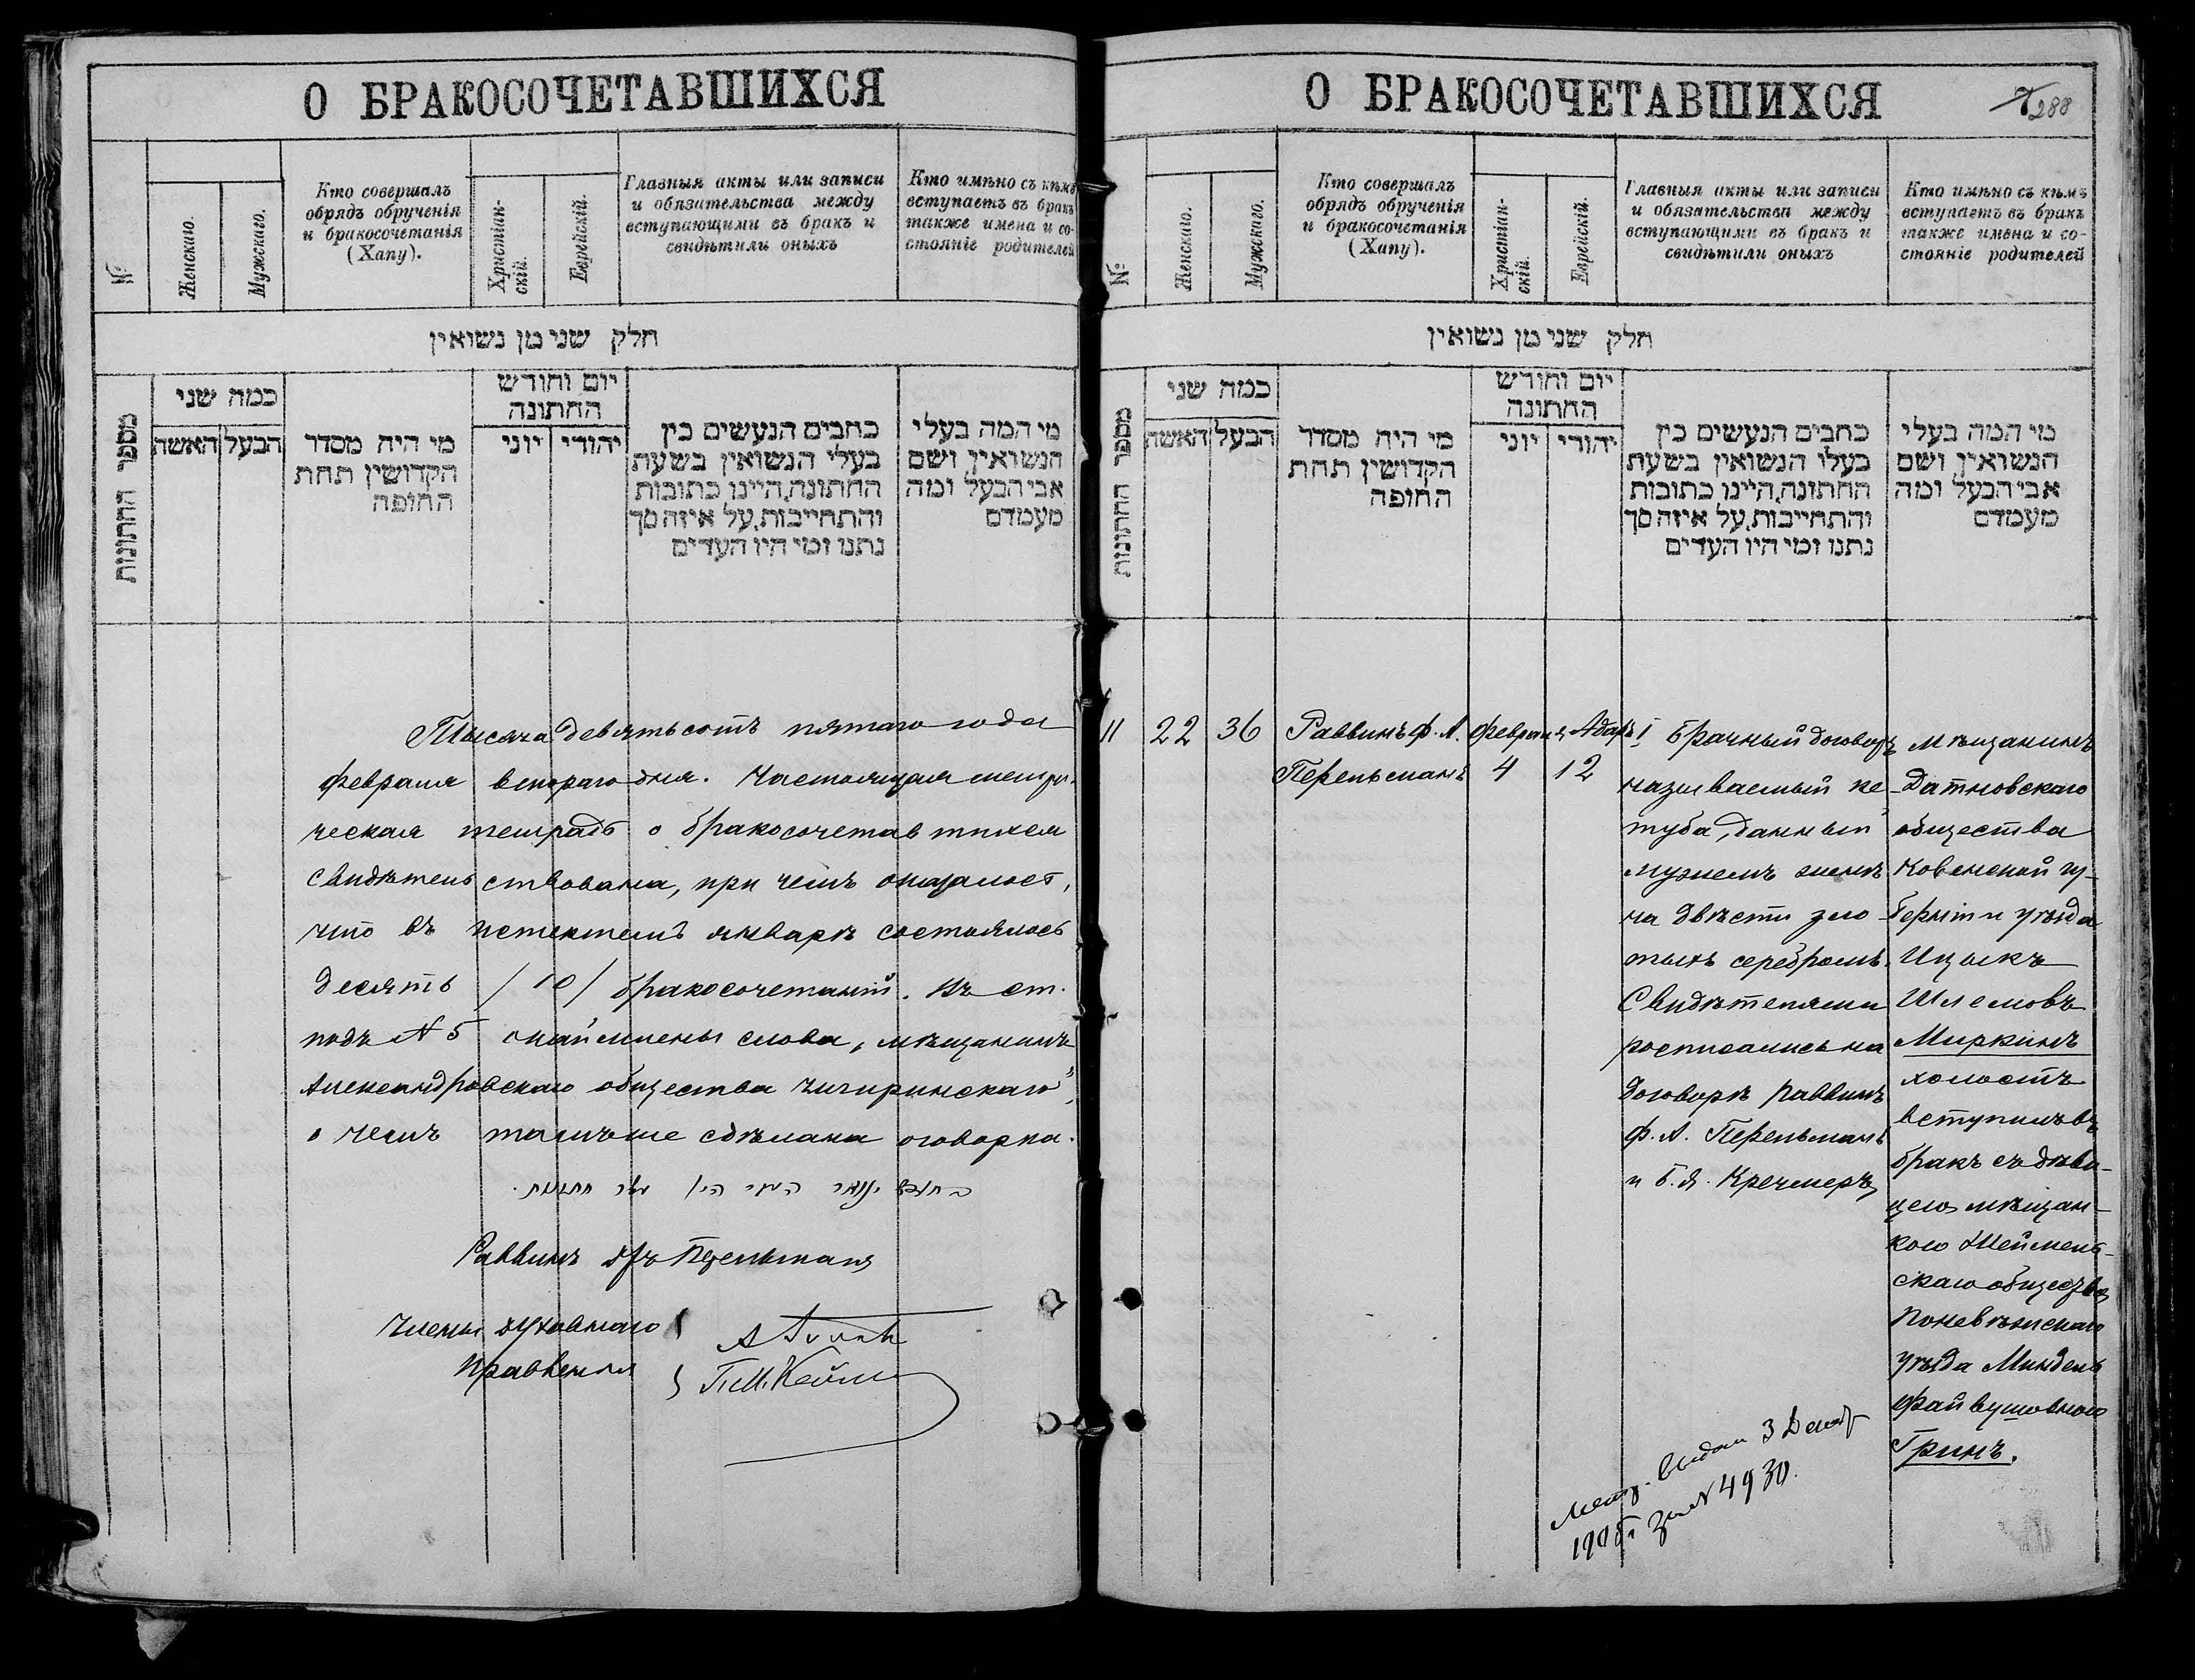 О БРАКОСОЧЕТАВШИХСЯ
№
Женскаго.
Мужскаго.
Кто совершалъ
обрядъ обрученія
и бракосочетанія
(Хапу).
Христіан-
скій.
Еврейскій.
Главныя акты или записи
и обязательства между
вступающими въ бракъ и
свидѣтили оныхъ
Кто имѣно съ кѣмъ
вступаетъ въ бракъ
также имена и со-
стояніе родителей
חלק שני מן נשואין
מספר החתונות
כמה שני
האשה
הבעל
מי היה מסדר
הקדושין תחת
החופה
יום וחודש
החתונה
יוני
יהודי
כתבים הנעשים בין
בעלי הנשואין בשעת
החתונה, היינו כתובות
והתחייבות, על איזה סך
נתנו ומי היו העדים
מי המה בעלי
הנשואין, ושם
אבי הבעל ומה
מעמדם
Тысяча девятьсотъ пятаго года
февраля втораго дня. Настоящая метри-
ческая тетрадь о бракосочетавшихся
свидѣтельствована, при чемъ оказалось,
что въ истекшемъ январѣ состоялось
десять /10/ бракосочетаній. Въ ст.
подъ № 5 окаймлены слова „мѣщанинъ
Александровскаго общества Чигиринскаго",
о чемъ тамъ же сдѣлана оговорка.
Раввинъ Перельманъ
Члены духовнаго
Правленія
О БРАКОСОЧЕТАВШИХСЯ
288
№
Женскаго.
Мужскаго.
Кто совершалъ
обрядъ обрученія
и бракосочетанія
(Хапу).
Христіан-
скій.
Еврейскій.
Главныя акты или записи
и обязательства между
вступающими въ бракъ и
свидѣтили оныхъ
Кто имѣно съ кѣмъ
вступаетъ въ бракъ
также имена и со-
стояніе родителей
חלק שני מן נשואין
מספר החתונות
כמה שני
האשה
הבעל
מי היה מסדר
הקדושין תחת
החופה
יום וחודש
החתונה
יוני
יהודי
כתבים הנעשים בין
בעלי הנשואין בשעת
החתונה, היינו כתובות
והתחייבות, על איזה סך
נתנו ומי היו העדים
מי המה בעלי
הנשואין, ושם
אבי הבעל ומה
מעמדם
11
22
36
Раввинъ Ф. А.
Перельманъ
Февраля
4
Адаръ I
12
Брачный договоръ
называемый ке-
туба, данный
мужемъ женѣ
на двѣсти зло-
тыхъ серебромъ.
Свидѣтелями
росписались на
договорѣ Раввинъ
Ф. А. Перельманъ
и Б. Я. Кречмеръ
Мѣщанинъ
Датновскаго
общества
Ковенской гу-
берніи и уѣзда
Ицыкъ
Шлемовъ
Миркинъ
холостъ
вступилъ въ
бракъ съ дѣви-
цею мѣщан-
кою Шеймель-
скаго общества
Поневѣжскаго
уѣзда Миндель
Файвушовною
Гринъ.
Метр. выдан 3 Декаб
1905 г. за № 4930.